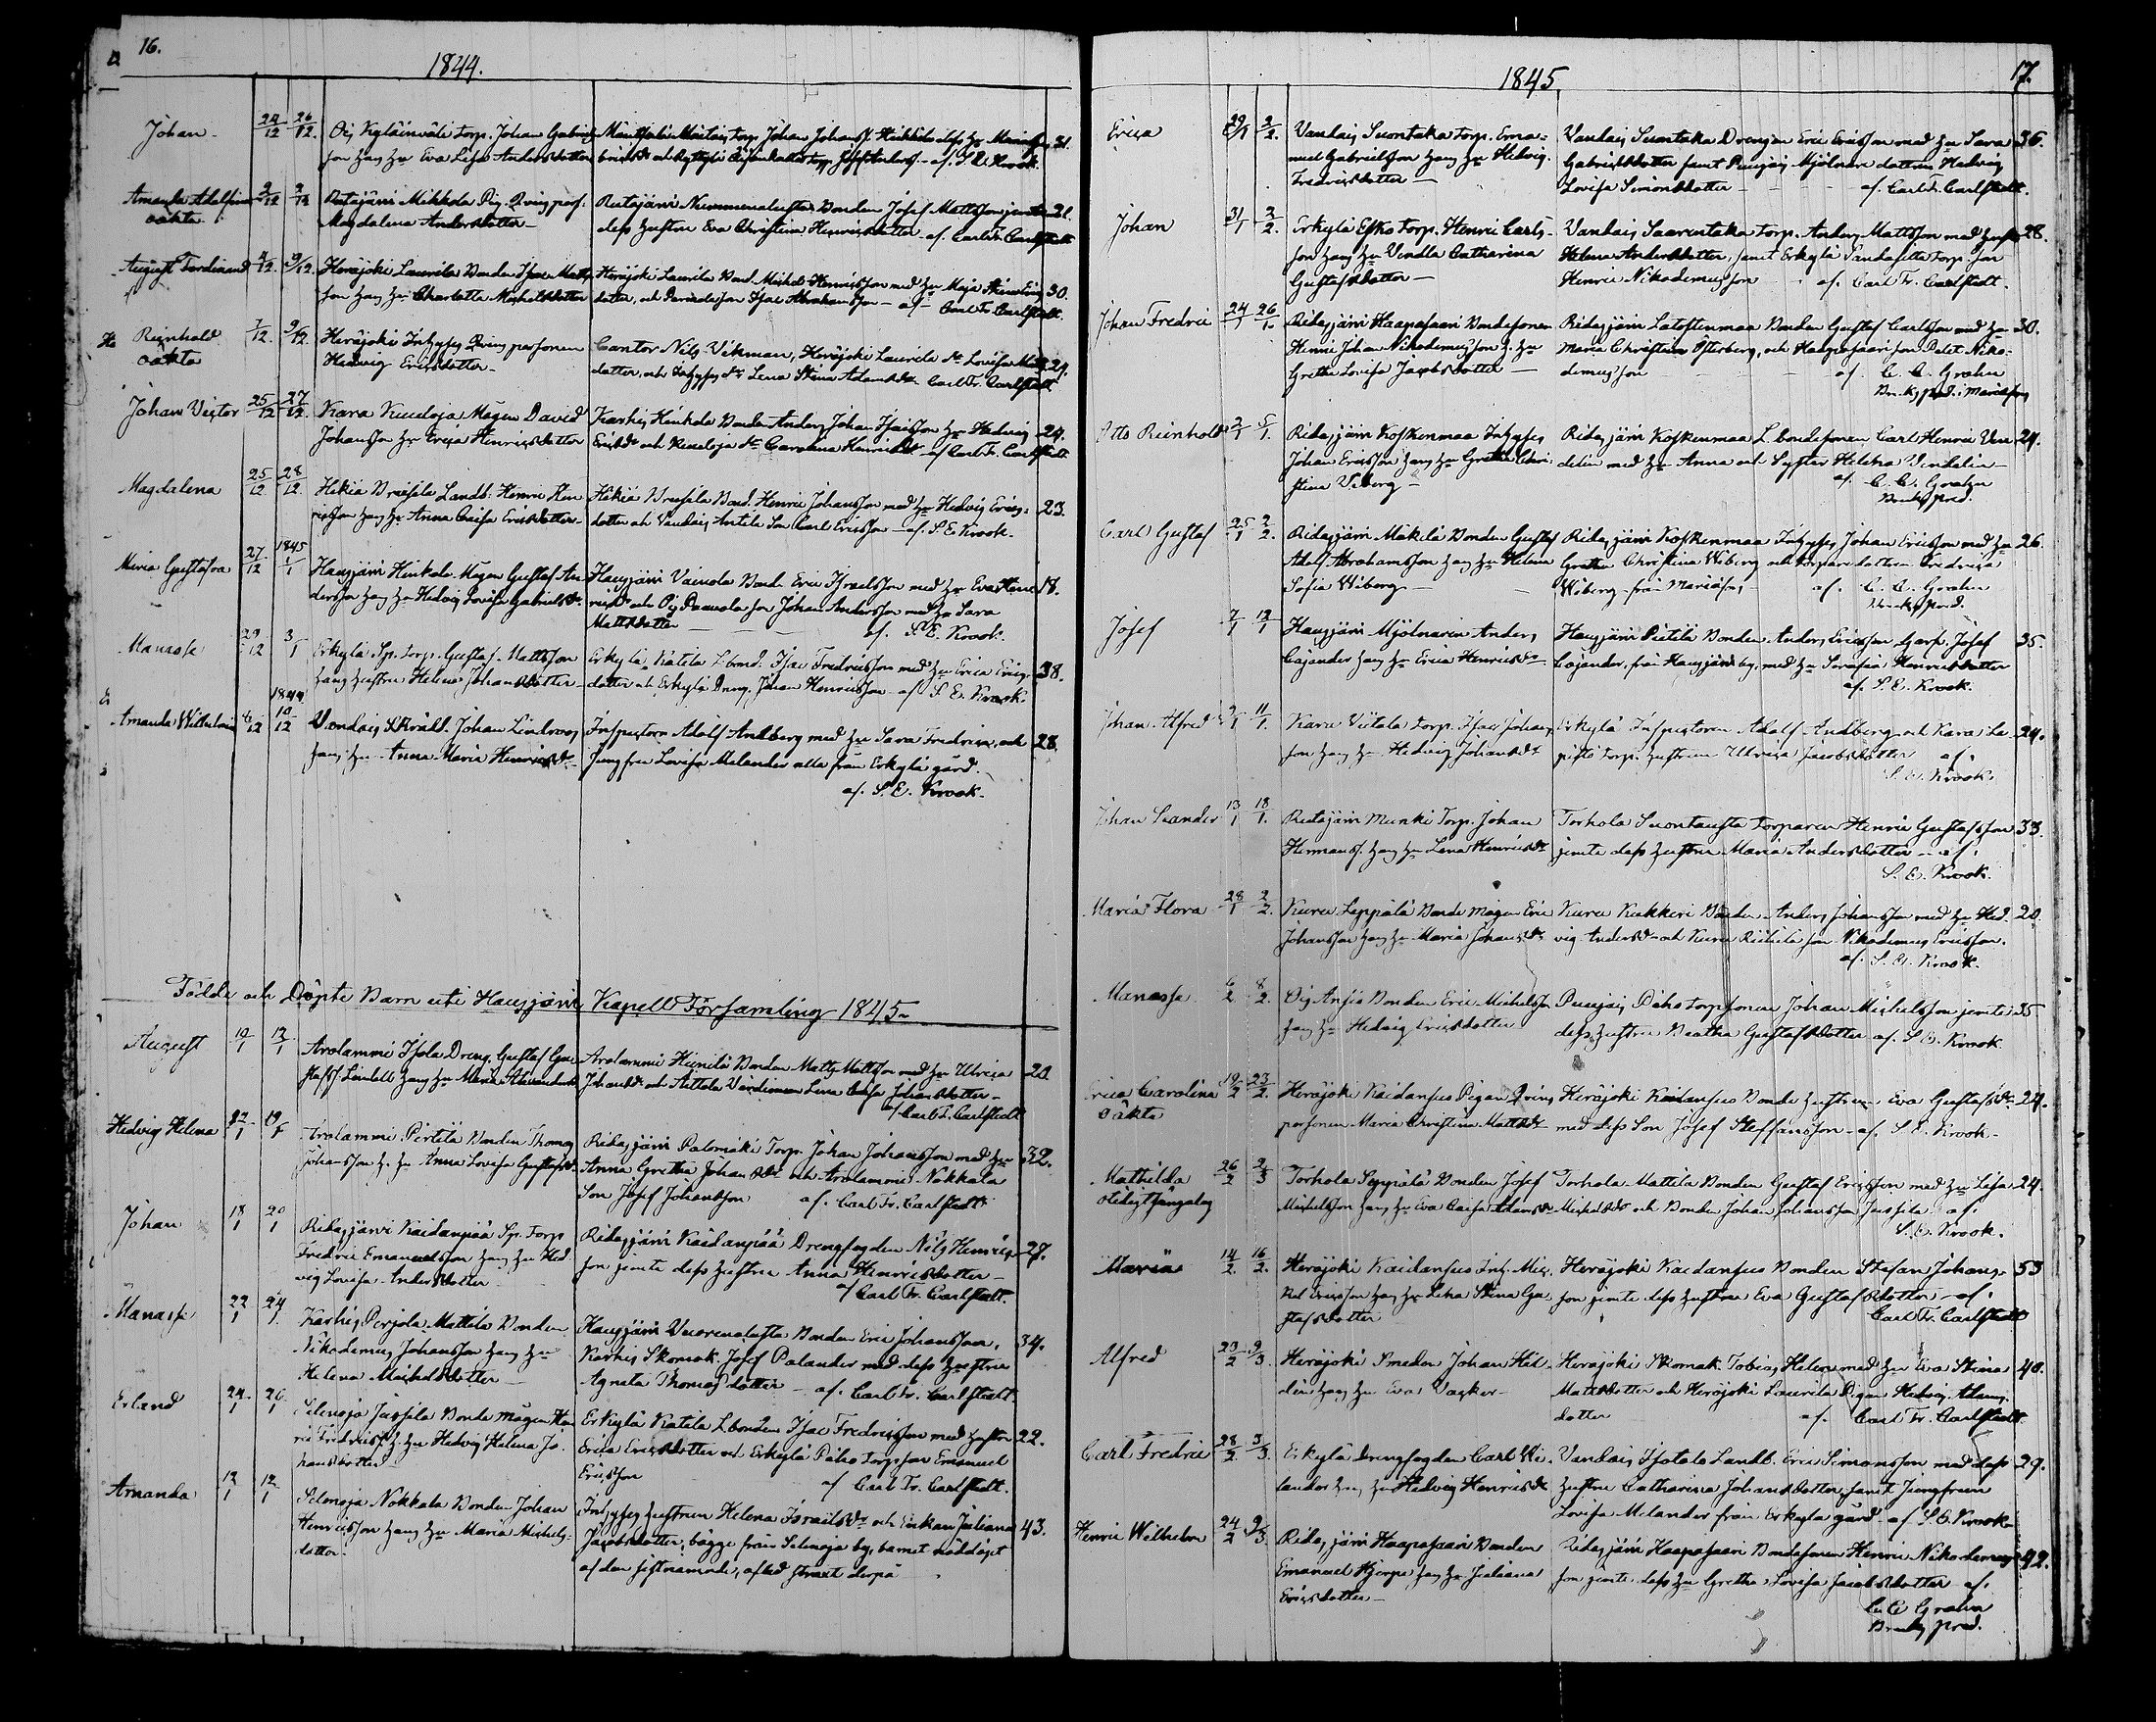 16.
1844.
Johan
24/12 26/12.
Oij Kyläinvali Torp. Johan Gabriels
son hans Hu Eva Lisa Andersdotter
31.
Amanda Adolfina
oäkta
2/12
Ratajärvi Mikkola Pig. Qvinsperf.
Magdalena Andersdotter
Ratajärvi Nummenalusta Bonden Josef Mattsson jemte
dess hustru Eva Christina Henricsdotter af. Carl Fr. Carlstedt
21.
August Ferdinand
4/12. 9/12.
Heräjoki Laurila Bonden Isac Matts
son hans Hu Charlotta Michelsdotter
Heräjoki Laurila Bond. Michel Henricsson med Hu Maja Stina Erics
dotter, och son Isac Abrahamsson af
Carl Fr. Carlstedt.
30.
Reinhold
oäkta
7/12. 9/12.
Heräjoki Inhyses Qvinspersonen
Hedvig Ericsdotter
Cantor Nils Vikman, Heräjoki Laurila dr Lovisa
dotter, och Inhyses dr Lena Stina Adamsdr Carl Fr. Carlstedt
29.
Johan Victor
25/12 27/12.
Kara Kuuloja Mågen David
Johansson Hu Erica Henricsdotter
Karhis Hinkola Bonden Anders Johan Isaksson Hu Hedvig
Ericsdr och Kuuloja dr Carolina Henricsdr af Carl Fr. Carlstedt
24.
Magdalena
25/12 28/12.
Hikiä Brusila Landb. Henric Hen
ricsson hans Hu Anna Caisa Ericsdotter
Hikiä Brusila Bond. Henric Johansson med Hu Hedvig Erics
dotter och Vandais Antila Son Carl Ericsson af. S. E. Krook.
23.
Maria Gustafva
27/12 1845 1/1
Hausjärvi Hinkola Mågen Gustaf An
dersson hans Hu Hedvig Lovisa Gabrielsdr
Hausjärvi Vainola Bond. Eric Israelsson med Hu Eva Hen
ricsdr och Oij Paavola son Johan Andersson med Hu Sara
Mattsdotter
af. S. E. Krook.
18.
Manasse
29/12 3/1
Erkylä Sp. Torp. Gustaf Mattsson
hans hustru Helena Johansdotter
Erkylä Katila L.bond. Isac Fredricsson med Hu Erica Erics
dotter och Erkylä Dreng. Johan Henricsson af S. E. Krook
38.
Amanda Wilhelmina
6/12 1844. 10/12
Vandais Johan Lindroos
hans Hu Anna Maria Henricsdr
Inspectorn Adolf Andberg med Hu Sara Fredrica, och
Jungfru Lovisa Melander alla från Erkylä gård.
af. S. E. Krook.
28.
Födde och Döpte Barn uti Hausjärvi Kapell Församling 1845
August
10/1 12/1
Arolammi Isola Dreng. Gustaf Gu
stafss Lindell hans Hu Maria Alexandersdr
Arolammi Hiivilä Bonden Matts Mattsson med Hu Ulrica
Johansdr och Värdinnan Lena Caisa Johansdotter
af Carl Fr. Carlstedt
20
Hedvig Helena
12/1 19/1
Arolammi Pirtilä Bonden Thomas
Johansson h. Hu Anna Lovisa Gustafsdr
Ridasjärvi Palomäki Torp. Johan Johansson med Hu
Anna Gretha Johansdr och Arolammi Nokkala
Son Josef Johansson af. Carl Fr. Carlstedt
32.
Johan
18/1 20/1
Ridasjärvi Kaidanpää Sp. Torp
Fredric Emanuelsson hans Hu Hed
vig Lovisa Andersdotter
Ridasjärvi Kaidanpää Drengfogden Nils Henrics
son jemte dess hustru Anna Henricsdotter
af Carl Fr. Carlstedt.
27.
Manasse
22/1 24/1.
Karhis Perjola Mattila Bonden
Nikodemus Johansson hans Hu
Helena Michelsdotter
Hausjärvi Vuorenalusta Bonden Eric Johansson,
Karhis Skomak. Josef Palander med dess hustru
Agneta Thomasdotter af. Carl Fr. Carlstedt.
34.
Erland
24/1 26/1
Selenoja Jussila Bonde mågen Hen
ric Fredricss. h. Hu Hedvig Helena Jo
hansdotter
Erkylä Katila L.bonden Isac Fredricsson med hustru
Erica Ericsdotter och Erkylä Päho Torp. son Emanuel
Ericsson
af Carl Fr. Carlstedt.
22.
Amanda
12/1 12/1
Selenoja Nokkala Bonden Johan
Henricsson hans Hu Maria Michels
dotter.
Inhyses hustrun Helena Israelsdr och Enkan Juliana
Jacobsdotter, bägge från Selenoja by, barnet nöddöpt
af den sistnämnde, afled straxt derpå
43.
1845.
17.
Erica
29/1 2/2.
Vandais Suontaka Torp. Ema
nuel Gabrielsson hans Hu Hedvig
Fredricsdotter
Vandais Suontaka Drengen Eric Ericsson med Hu Sara
Gabrielsdotter samt Puujas Mjölnare dottren Hedvig
Lovisa Simonsdotter
af. Carl Fr. Carlstedt.
36.
Johan
31/1 2/2.
Erkylä Esko Torp. Henric Carls
son hans Hu Vendla Catharina
Gustafsdotter
Vandais Saarentaka Torp. Anders Mattsson med hustru
Helena Andersdotter, samt Erkylä Torp. son
Henric Nikodemusson af. Carl Fr. Carlstedt.
28.
Johan Fredric
24/1 26/1.
Ridasjärvi Haapasaari Bondesonen
Henric Johan Nikodemusson h. Hu
Gretha Lovisa Jacobsdotter
Ridasjärvi Latostenmaa Bonden Gustaf Carlsson med Hu
Maria Christina Österberg, och Haapasaari son Niko
demusson
af. C. C. Grahn
Bruks pred. i Mariefors
30.
Otto Reinhold
2/1 5/1.
Ridasjärvi Koskenmaa Inhyses
Johan Ericsson hans Hu Gretha Chri
stina Viberg
Ridasjärvi Koskenmaa L. bondesonen Carl Henric Ven
delin med Hu Anna och Syster Helena Vendelin
af. C. C. Grahn
Bruks pred.
29.
Carl Gustaf
25/1 2/2.
Ridasjärvi Mäkelä Bonden Gustaf
Adolf Abrahamsson hans Hu Helena
Sofia Wiberg
Ridasjärvi Koskenmaa Inhyses Johan Ericsson med Hu
Gretha Christina Wiberg och Torpare dottren Fredrica
Wiberg från Mariefors
af. C. C. Grahn
Bruks pred.
26.
Josef
7/1 12/1
Hausjärvi Mjölnaren Anders
Cajander hans Hu Erica Henricsdr
Hausjärvi Pietilä Bonden Anders Ericsson Josef
Cajander, från Hausjärvi by, med Hu Serafia Henricsdotter
af. S. E. Krook.
35.
Johan Alfred
9/1 11/1.
Karu Viitala Torp. Isac Johans
son hans Hu Hedvig Johansdr
Erkylä Inspectoren Adolf Andberg och Kara Le
pistö Torp. hustrun Ulrica Jacobsdotter af.
S. E. Krook.
24.
Johan Leander
13/1 18/1.
Ratajärvi Munki Torp. Johan
Hermanss. hans Hu Lena Henricsdr
Torhola Suontausta Torparen Henric Gustafsson
jemte dess hustru Maria Andersdotter af.
S. E. Krook.
33.
Maria Flora
28/1 2/2.
Kuru Leppälä Bonde mågen Eric
Johansson hans Hu Maria Johansdr
Kuru Kukkeri Bonden Anders Johansson med Hu Hed
vig Andersdr och Kuru Riihilä son Nikodemus Ericsson.
af. S. E. Krook.
20.
Manasse
6/2 8/2.
Oij Ansio Bonden Eric Michelsson
hans Hu Hedvig Ericsdotter
Puujas Päho Torpsonen Johan Michelsson jemte
dess hustru Beatha Gustafsdotter af. S. E. Krook
35
Erica Carolina
oäkta
19/2 23/2.
Heräjoki Kaidansus Pigan Qvins
personen Maria Christina Mattsdr
Heräjoki Kaidansus Bonde hustrun Eva Gustafsdr
med dess Son Josef Steffansson af. S. E. Krook
24.
Mathilda
otidigt sängelag
26/2 2/3
Torhola Seppälä Bonden Josef
Michelsson hans Hu Eva Caisa Adamsdr
Torhola Mattila Bonden Gustaf Ericsson med Hu Lisa
Michelsdr och Bonden Johan Johansson Jussila af.
S. E. Krook.
24.
Maria
14/2. 16/2.
Heräjoki Kaidansus Inh. Mic
hel Ericsson hans Hu Lena Stina Gu
stafsdotter
Heräjoki Kaidansus Bonden Stefan Johans
son jemte dess hustru Eva Gustafsdotter af.
Carl Fr. Carlstedt
53
Alfred
23/2 2/3.
Heräjoki Smeden Johan Hel
den hans Hu Eva Vasker
Heräjoki Skomak. Tobias Helen med Hu Eva Stina
Mattsdotter och Heräjoki Laurila Pigan Hedvig Adams
dotter
af. Carl Fr. Carlstedt.
40.
Carl Fredric
28/2. 3/3.
Erkylä Drengfogden Carl We
lander hans Hu Hedvig Henricsdr
Vandais Isotalo Landb. Eric Simonsson med dess
hustru Catharina Johansdotter, samt Jungfrun
Lovisa Melander från Erkylä gård af S. E. Krook
29.
Henric Wilhelm
24/2 2/3.
Ridasjärvi Haapasaari Bonden
Emanuel Hjerpe hans Hu Juliana
Ericsdotter
Ridasjärvi Haapasaari Bondesonen Henric Nikodemus
son jemte dess Hu Gretha Lovisa Jacobsdotter af.
C. C. Grahn
Bruks pred.
42.